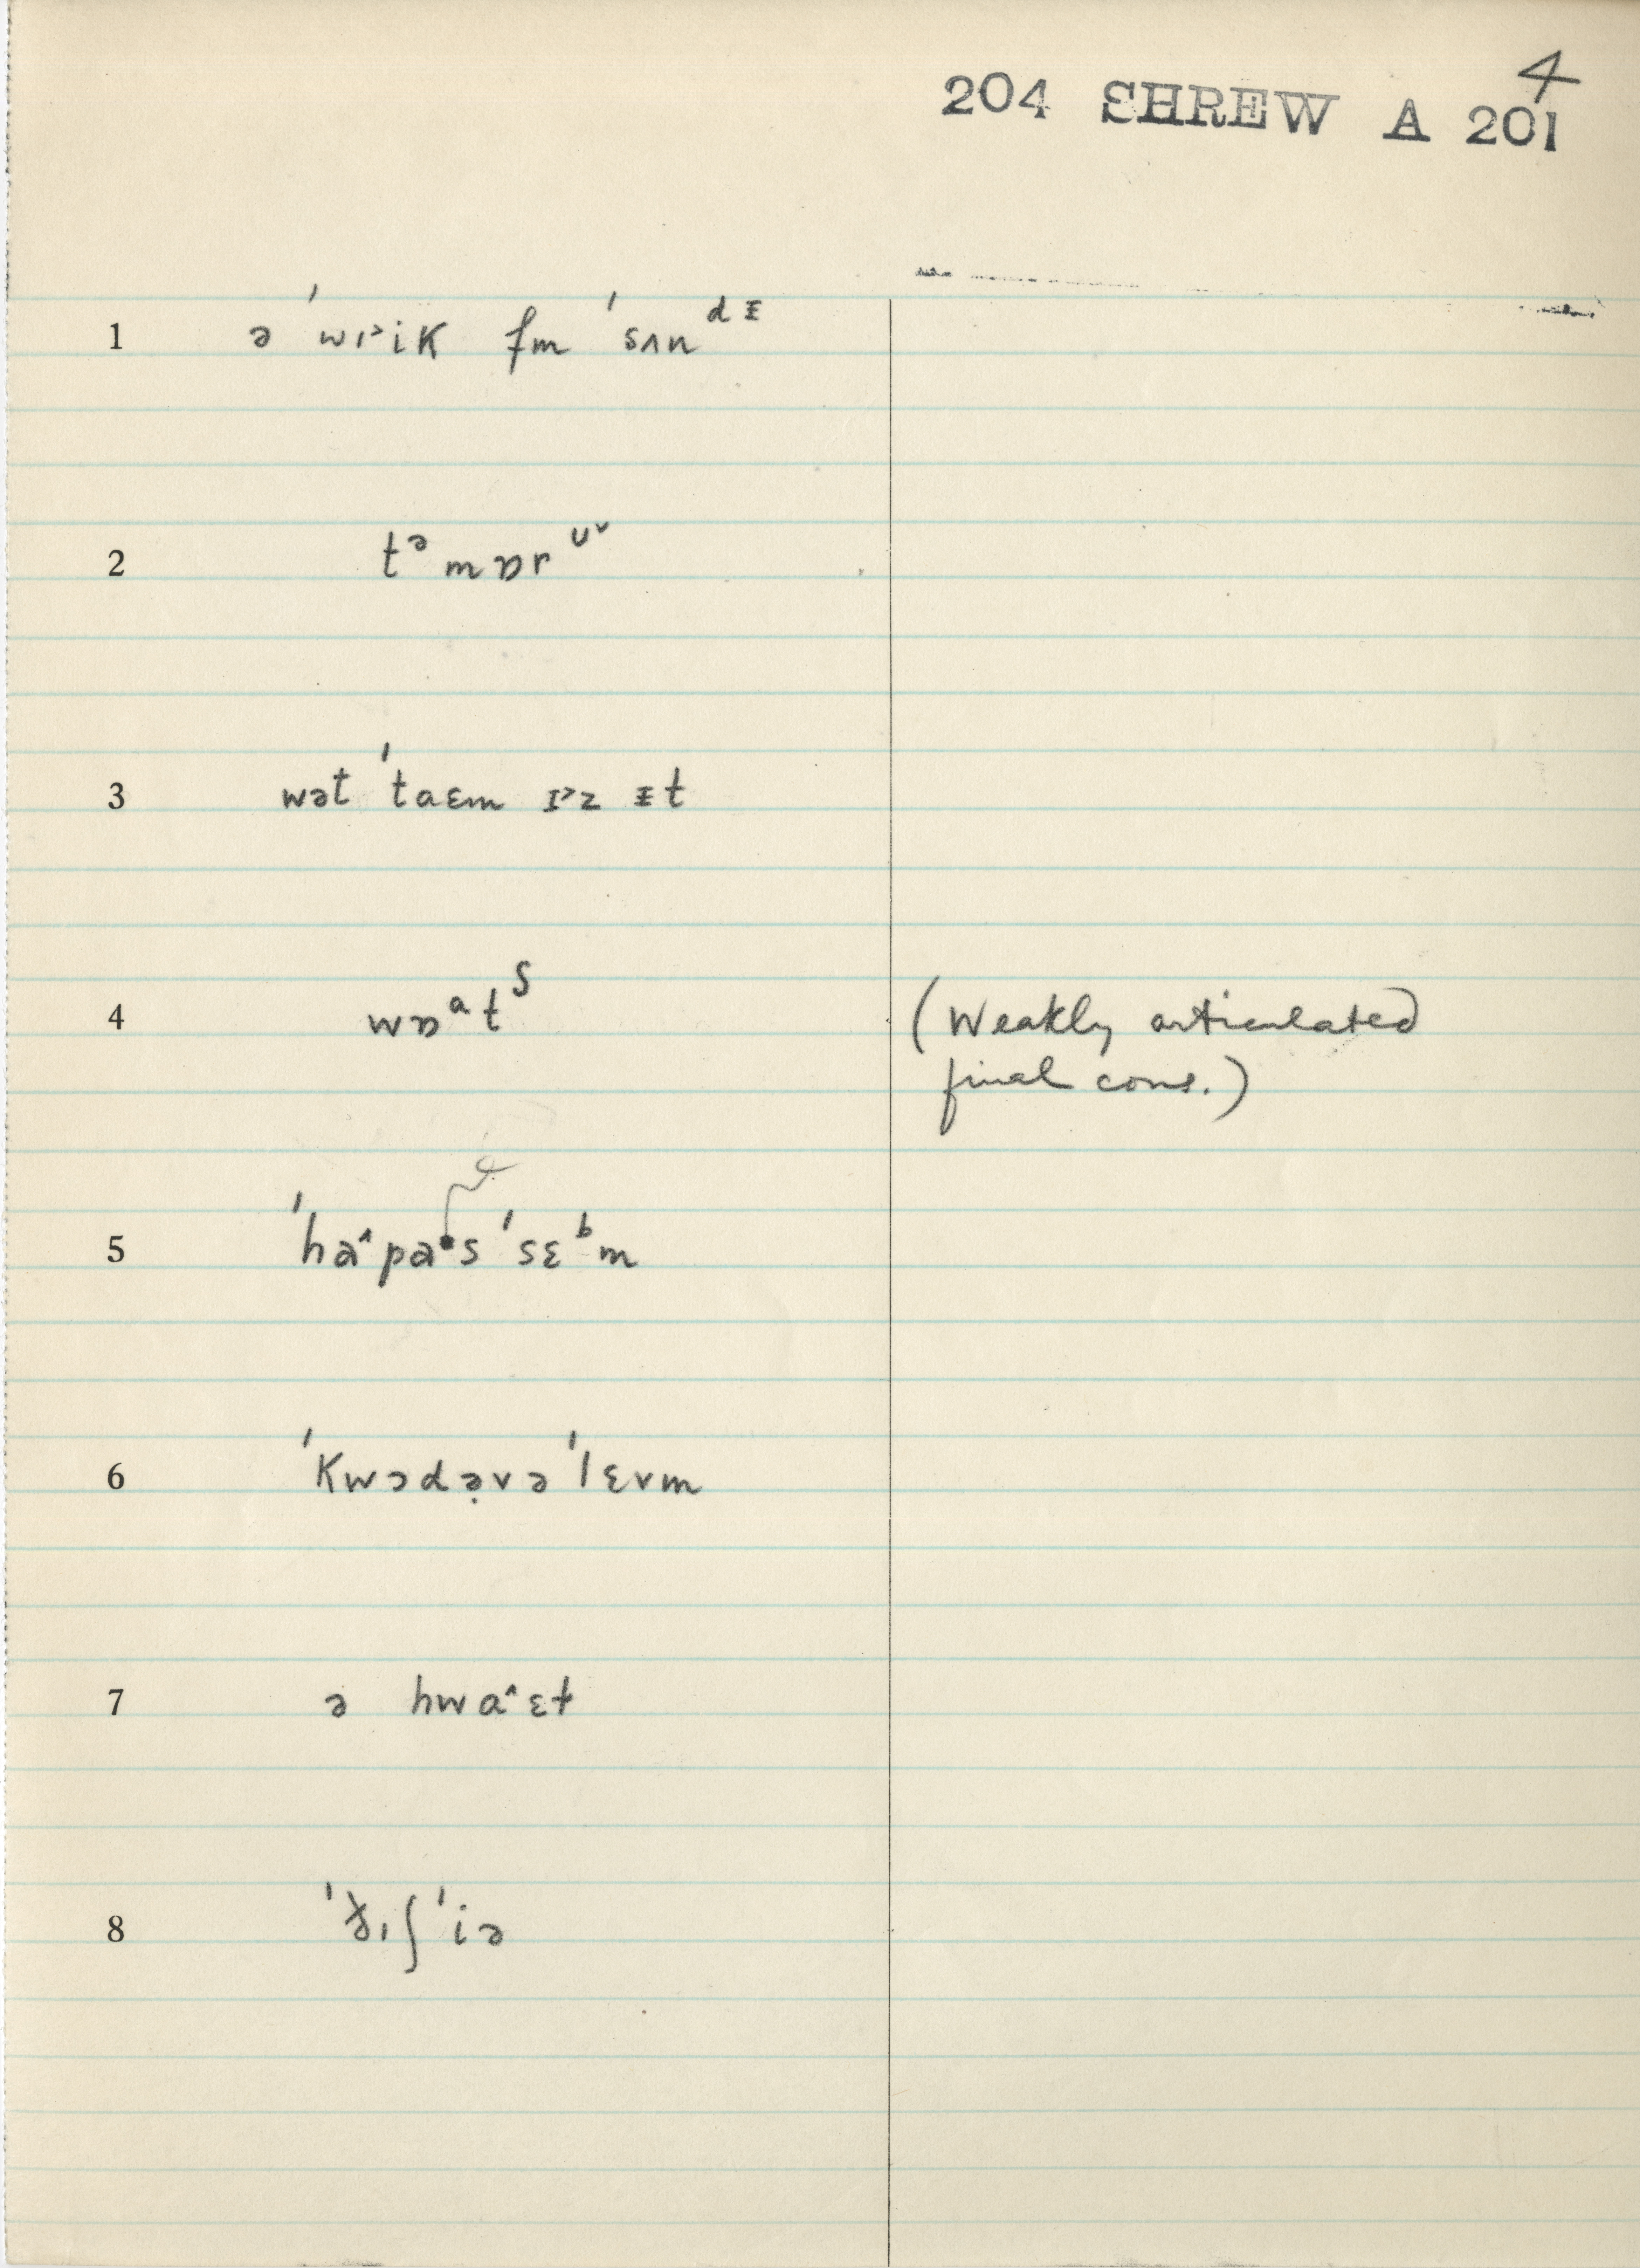 4
204 SHREW A 201
1 ə ˈwɪ˃ik fm ˈsʌnᵈᵻ
2 tᵊmɒrᶷ˅
3 wət ˈtaɛm ɪ˃z ᵻt
4 wɒᵃtˢ (Weakly articulated
final cons.)
5 ˈha˄pa s ˈsɛᵇm
6 ˈkwɔdə̣və ˈlɛvm
7 ə hwa˄ɛt
8 ɪʃ ˈiə